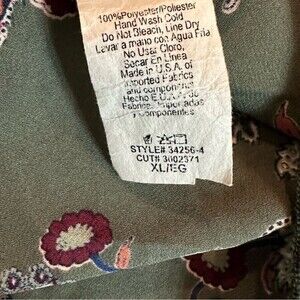 100%Polyester/Poliester
Hand Wash Cold
Do Not Bleach, Line Dry
Lavar a mano con Agua Fria
No Usar Cloro,
Secar En Linea
Made in U.S.A. of
Imported Fabrics
and component
Hecho E.U.A. de
Fabricas Importadas
y Componentes
STYLE# 34256-4
CUT# 3002371
XL/EG